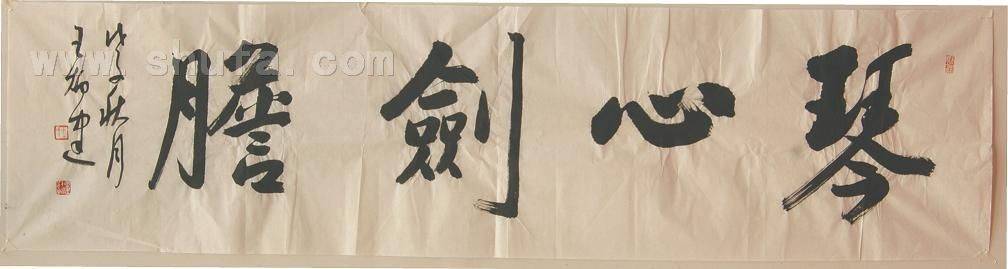 琴心劍膽
秋月
王
www.shufa.com